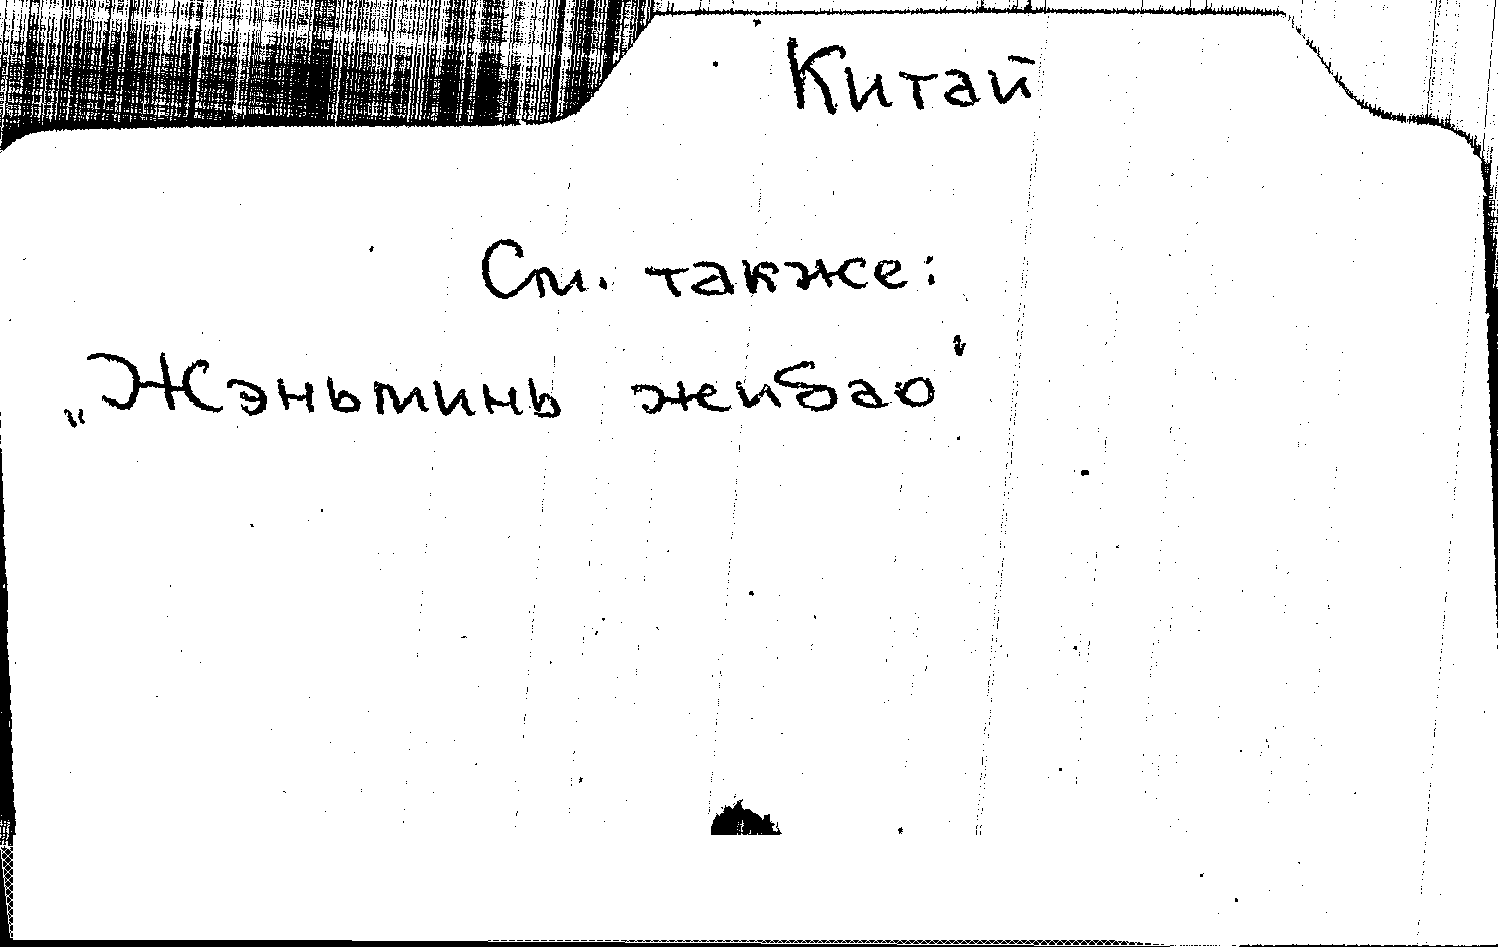 Китай
См. также:
„Жэньминь жибао"